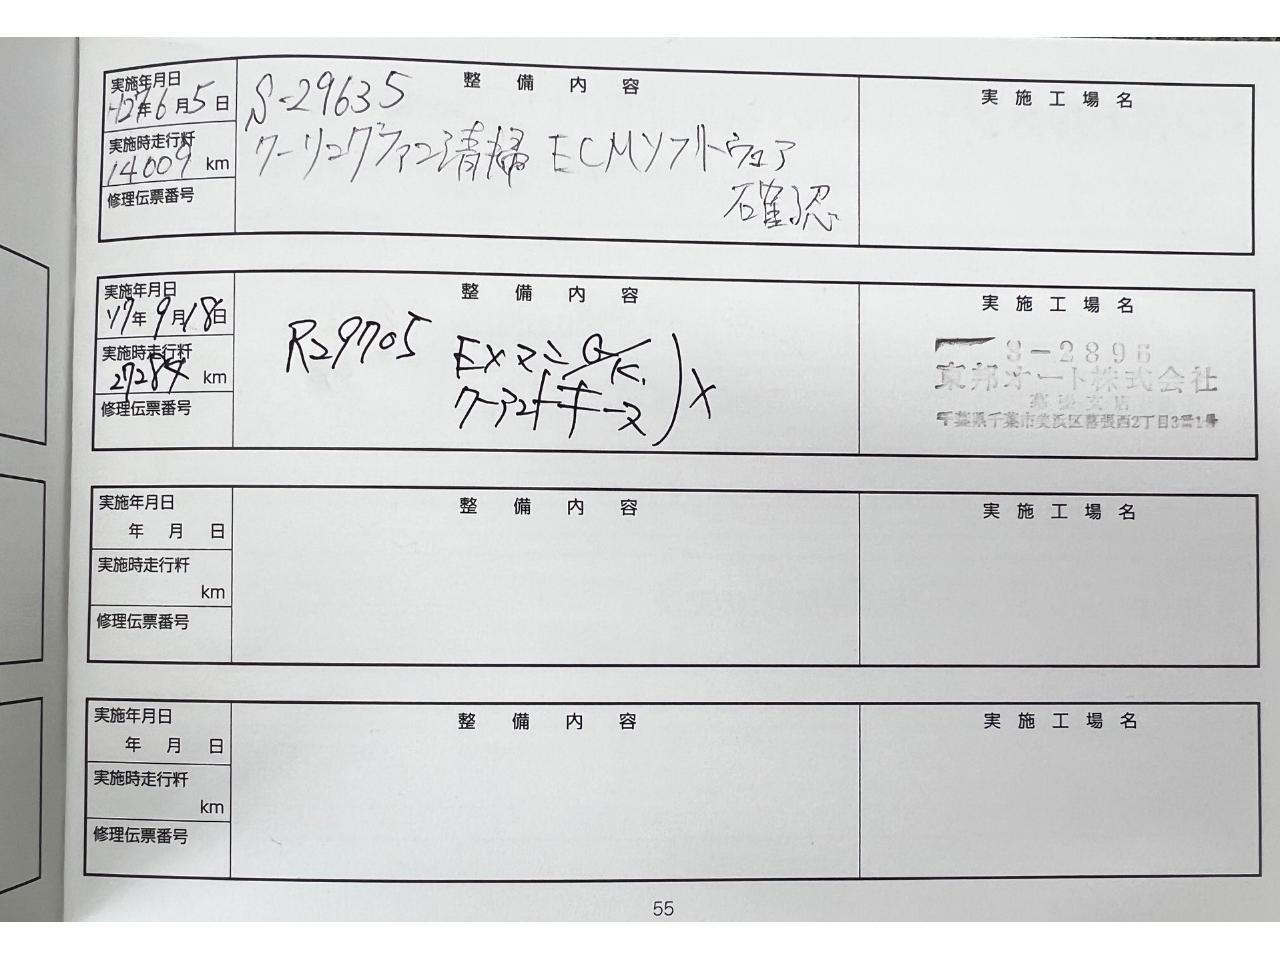 実施年月日
年6月5日
実施時走行粁
14009 km
修理伝票番号
整備内容
S-29635
クーリングファン清掃 ECMソフトウェア
確認
実施工場名
実施年月日
'17年9月18日
実施時走行粁
27284 km
修理伝票番号
整備内容
R29705 EXマニG/K.
実施工場名
S-2896
東邦オート株式会社
幕張支店
千葉県千葉市美浜区幕張西2丁目3番1号
実施年月日
年 月 日
実施時走行粁
km
修理伝票番号
整備内容
実施工場名
実施年月日
年 月 日
実施時走行粁
km
修理伝票番号
整備内容
実施工場名
55